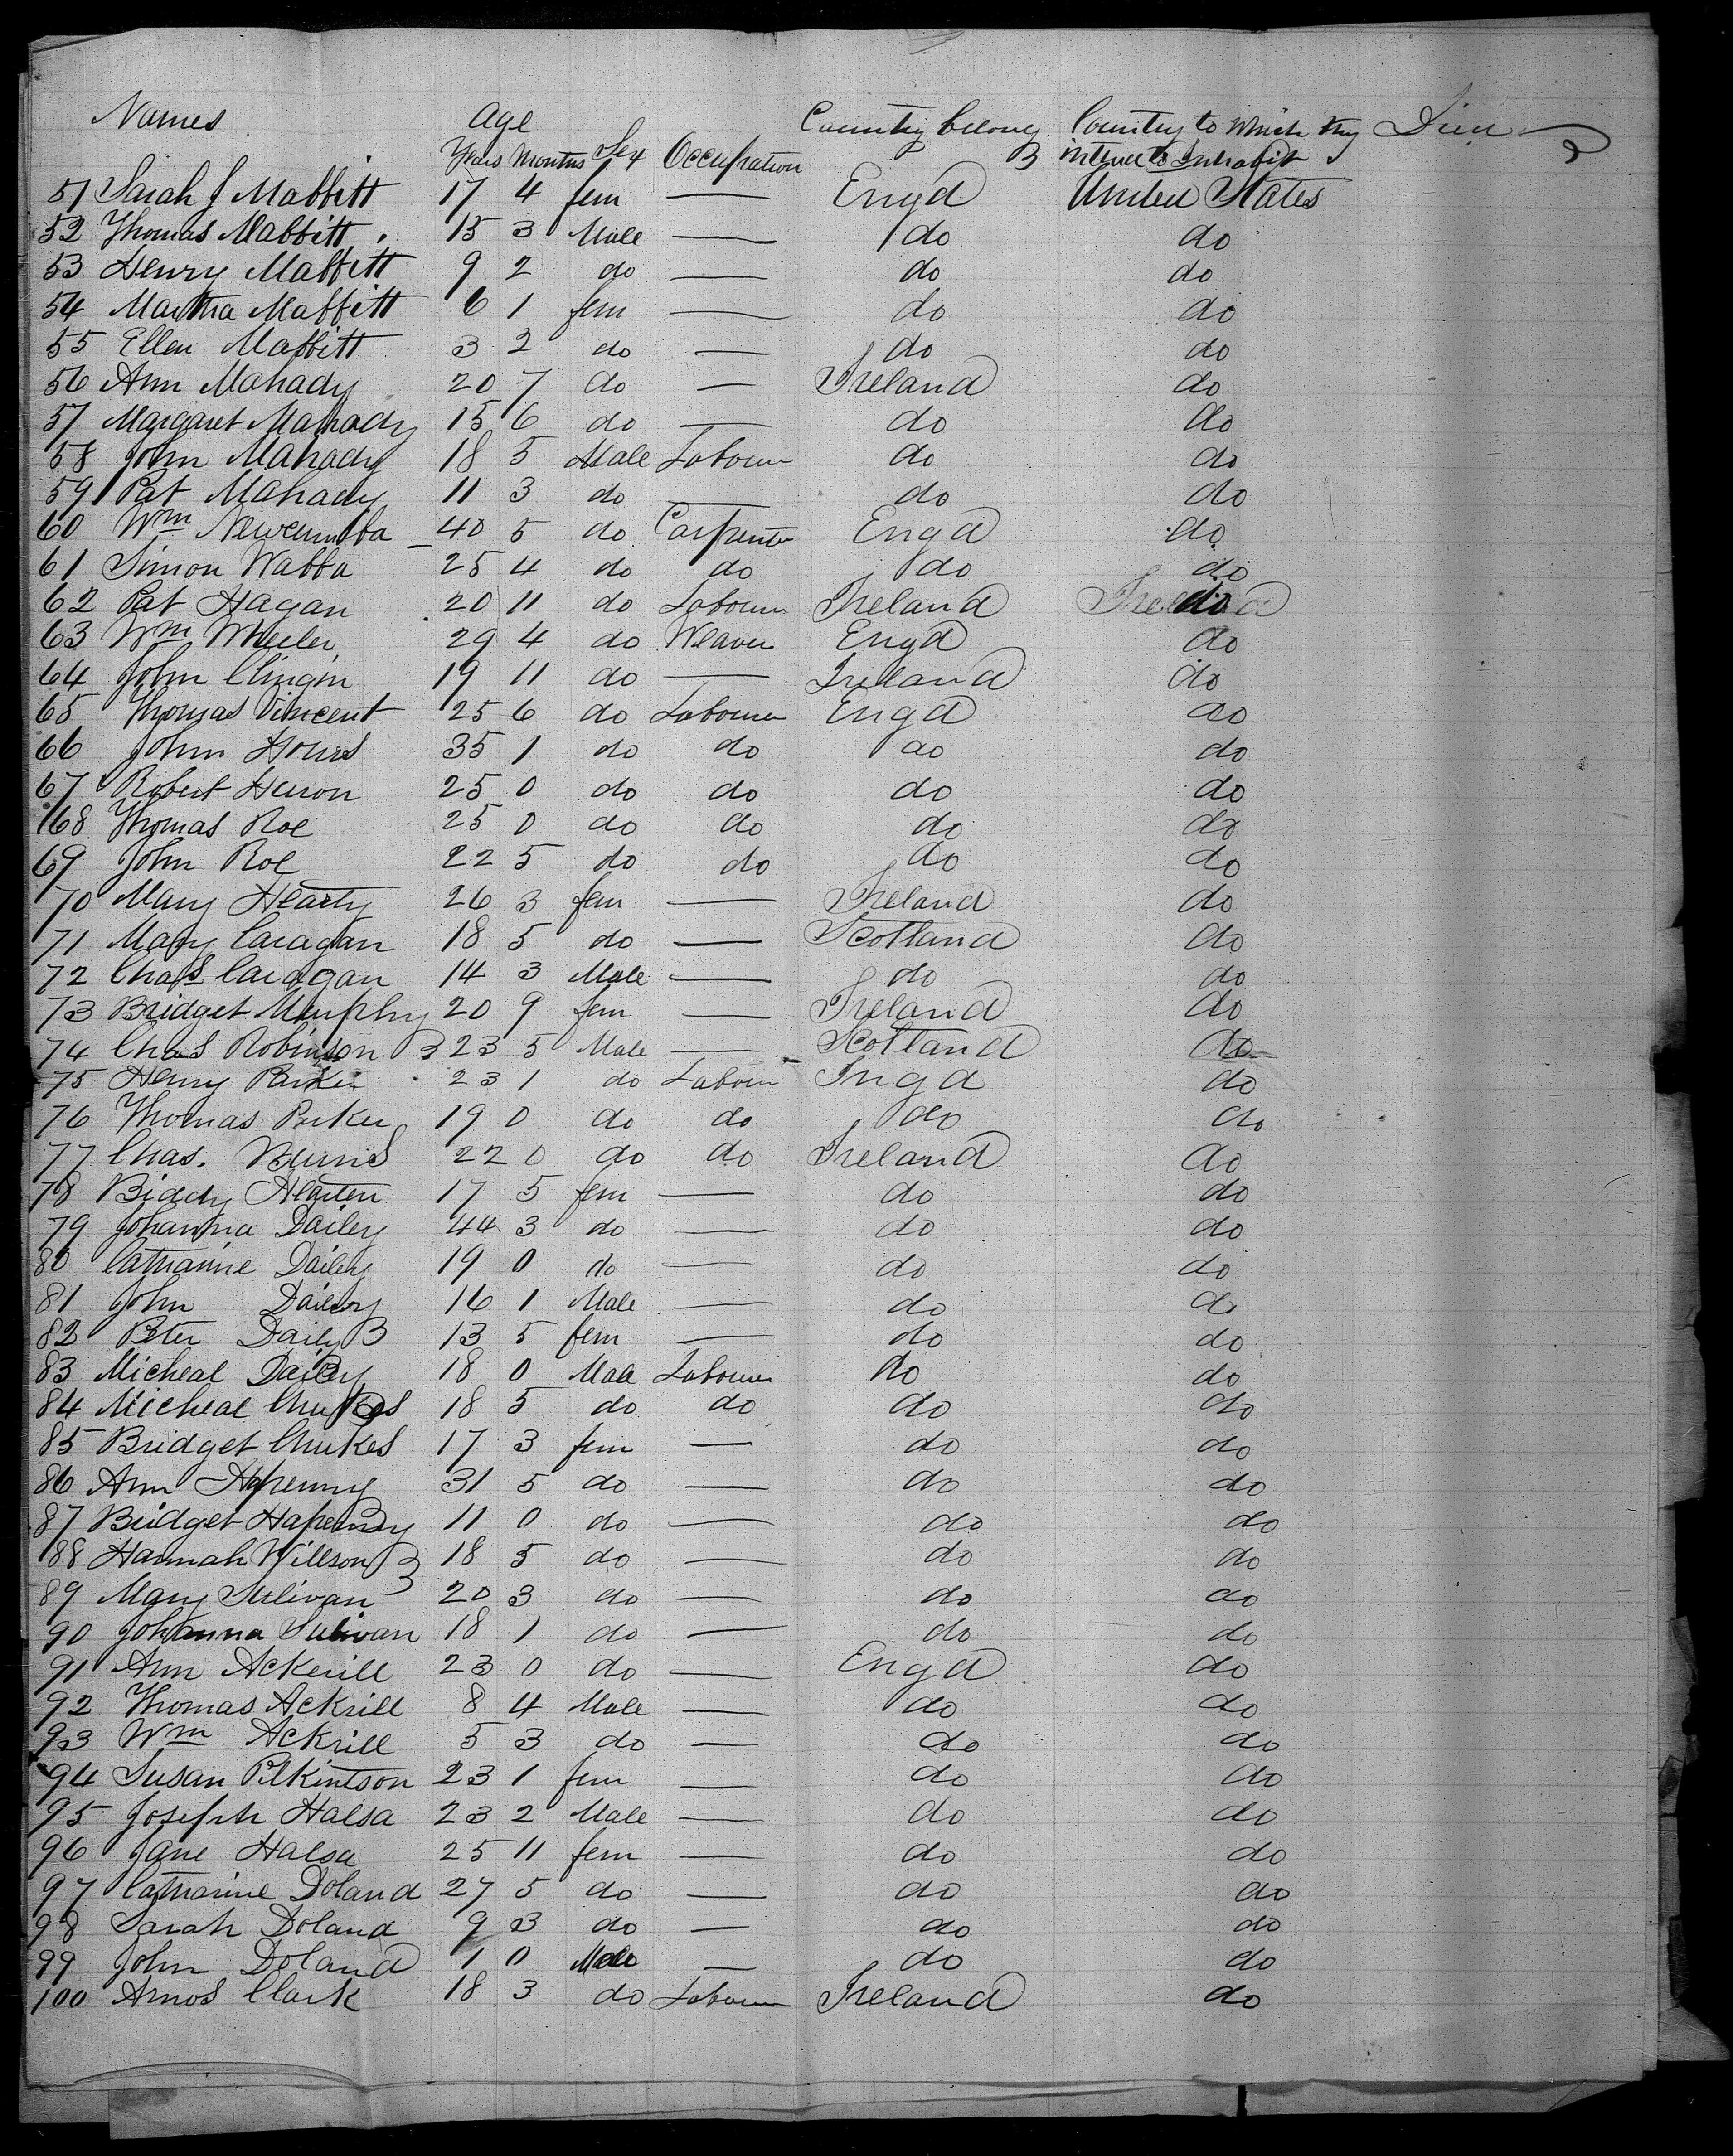 Names Age Country belong Country to which they Died
Years Months Sex Occupation intend to Inhabit
51 Sarah J Mabbitt 17 4 fem — Engd United States
52 Thomas Mabbitt 15 3 Male — do do
53 Henry Mabbitt 9 2 do — do do
54 Martha Mabbitt 6 1 fem — do do
55 Ellen Mabbitt 3 2 do — do do
56 Ann Mahady 20 7 do — Ireland do
57 Margaret Mahady 15 6 do — do do
58 John Mahady 18 5 Male Labourer do do
59 Pat Mahady 11 3 do — do do
60 Wm 40 5 do Carpenter Engd do
61 Simon Wabba 25 4 do do do do
62 Pat Hagan 20 11 do Labourer Ireland do
63 Wm Wheeler 29 4 do Weaver Engd do
64 John Clingin 19 11 do — Ireland do
65 Thomas Vincent 25 6 do Labourer Engd do
66 John 35 1 do do do do
67 Robert Heron 25 0 do do do do
68 Thomas Roe 25 0 do do do do
69 John Roe 22 5 do do do do
70 Mary Hearty 26 3 fem — Ireland do
71 Mary Caragan 18 5 do — Scotland do
72 Chas Caragan 14 3 Male — do do
73 Bridget Murphy 20 9 fem — Ireland do
74 Chas Robinson 23 5 Male — Scotland do
75 Henry Parker 23 1 do Labour Engd do
76 Thomas Parker 19 0 do do do do
77 Chas. Burns 22 0 do do Ireland do
78 Biddy 17 5 fem — do do
79 Johanna Dailey 44 3 do — do do
80 Catharine Dailey 19 0 do — do do
81 John Dailey 16 1 Male — do do
82 Peter Daily 13 5 fem — do do
83 Micheal Dailey 18 0 Male Labourer do do
84 Micheal Chukes 18 5 do do do do
85 Bridget Chukes 17 3 fem — do do
86 Ann Hapenny 31 5 do — do do
87 Bridget Hapenny 11 0 do — do do
88 Hannah Willson 18 5 do — do do
89 Mary Sulivan 20 3 do — do do
90 Johanna Sulivan 18 1 do — do do
91 Ann Ackerill 23 0 do — Engd do
92 Thomas Ackrill 8 4 Male — do do
93 Wm Ackrill 5 3 do — do do
94 Susan Pilkintson 23 1 fem — do do
95 Joseph Halsa 23 2 Male — do do
96 Jane Halsa 25 11 fem — do do
97 Catharine Doland 27 5 do — do do
98 Sarah Doland 9 3 do — do do
99 John Doland 1 0 Male — do do
100 Amos Clark 18 3 do Labourer Ireland do